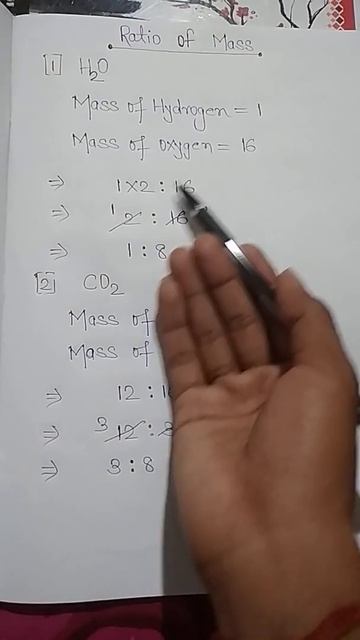 Ratio of Mass
[1] H₂O
Mass of Hydrogen = 1
Mass of Oxygen = 16
⇒ 1×2 : 16
⇒ 1 2 : 16
⇒ 1 : 8
[2] CO₂
Mass of
Mass of
⇒ 12 : 1
⇒ 3 12 : 3
⇒ 3 : 8